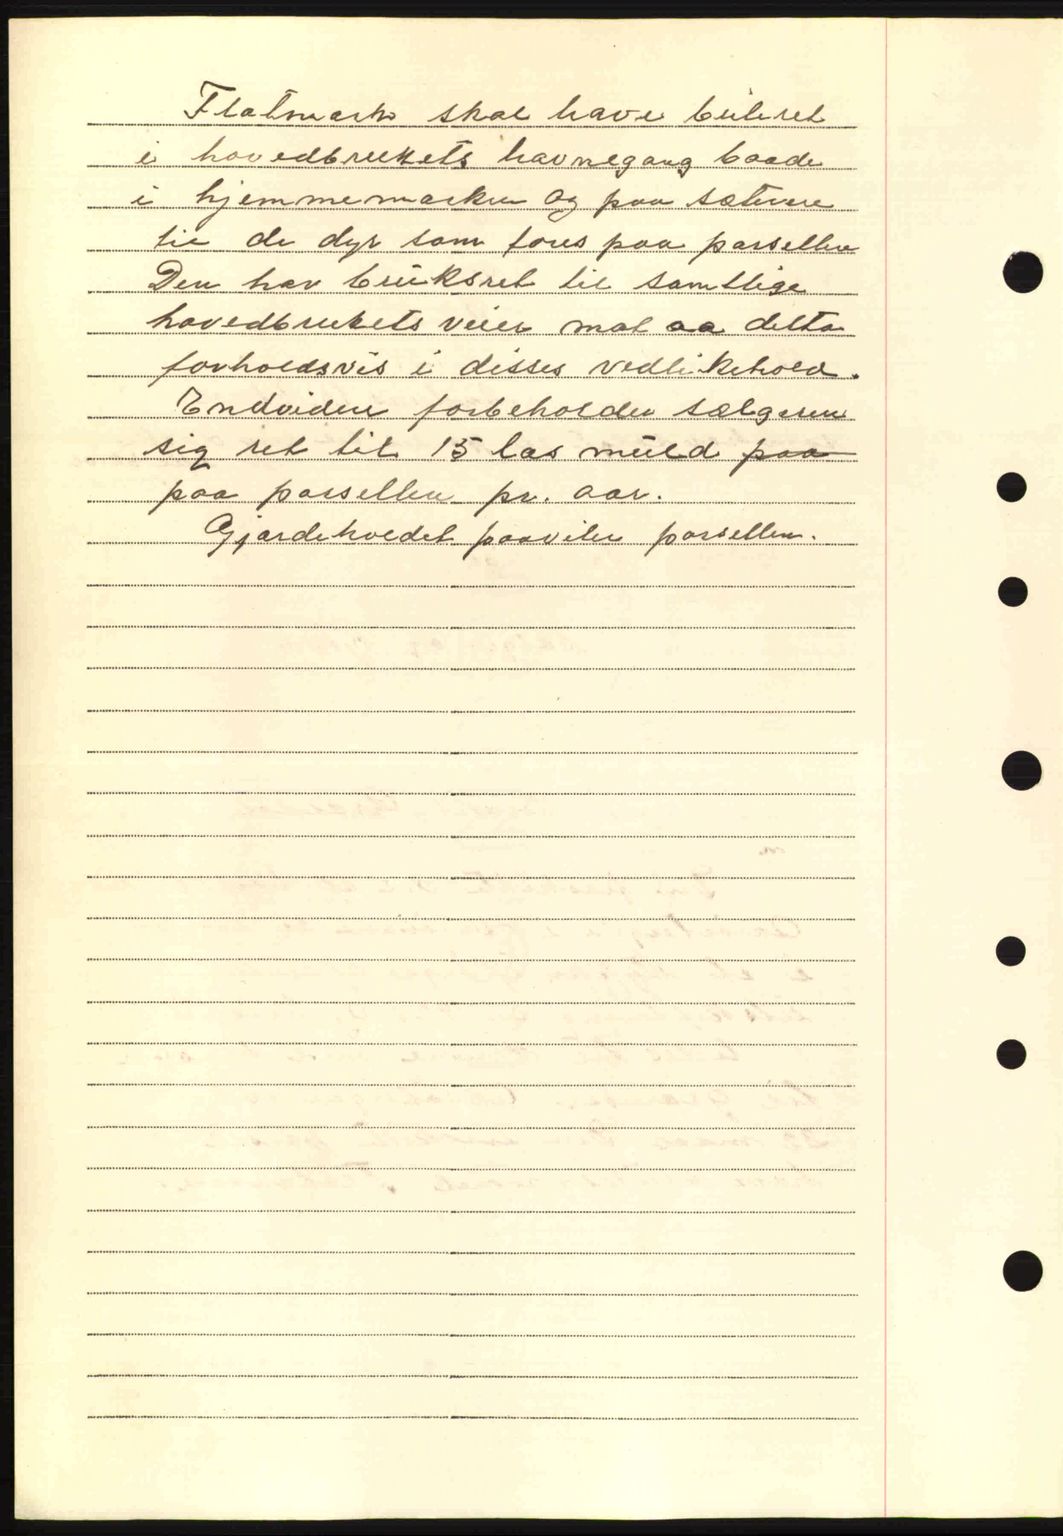 Flatmark skal have beiteret
i hovedbrukets havnegang baade
i hjemmemarken og paa sæterene
til de dyr som fores paa parsellen
Den har bruksret til samtlige
hovedbrukets veier mot aa delta
forholdsvis i disses vedlikehold.
Endvidere forbeholder sælgeren
sig ret til 15 las muld paa
paa parsellen pr. aar.
Gjærdeholdet paaviler parsellen.